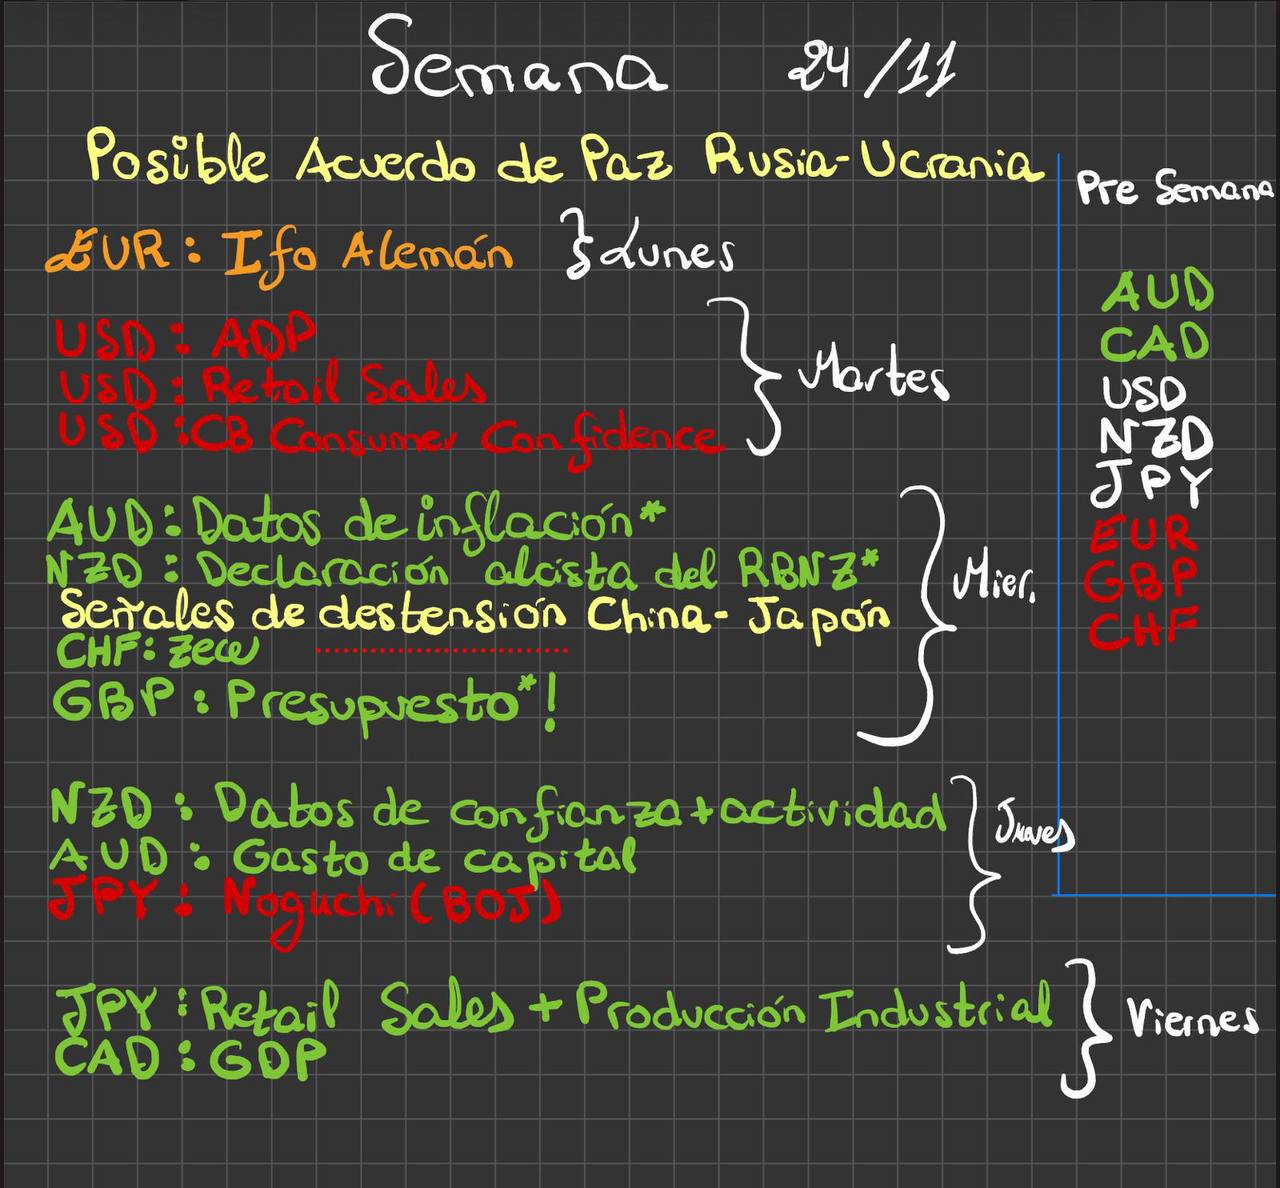 Semana 24/11
Posible Acuerdo de Paz Rusia-Ucrania
EUR: Ifo Alemán } Lunes
USD: ADP
USD: Retail Sales
USD: CB Consumer Confidence
} Martes
AUD: Datos de inflación*
NZD: Declaración alcista del RBNZ*
Señales de destensión China-Japón
CHF: zew
GBP: Presupuesto*!
} Mier.
NZD: Datos de confianza+actividad
AUD: Gasto de capital
JPY: Noguchi (BOJ)
} Jueves
JPY: Retail Sales + Producción Industrial
CAD: GDP
} Viernes
Pre Semana
AUD
CAD
USD
NZD
JPY
EUR
GBP
CHF